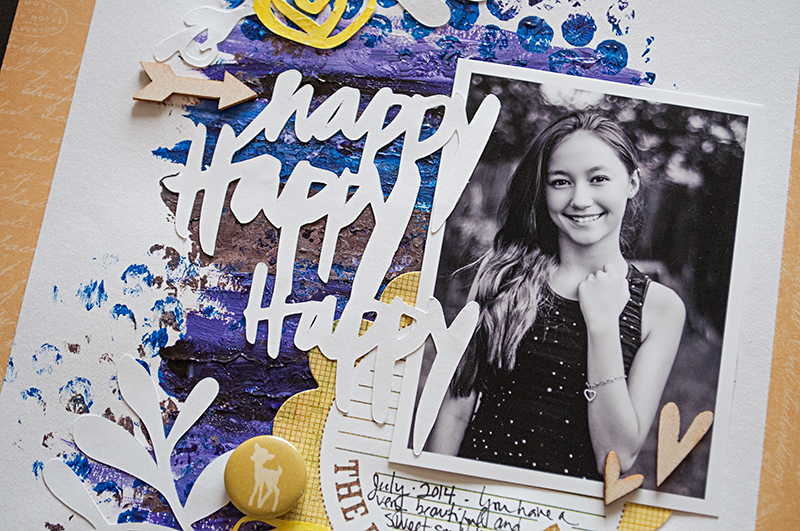 happy
Happy
Happy
THE
July 2014 - You have a
very beautiful and
sweet